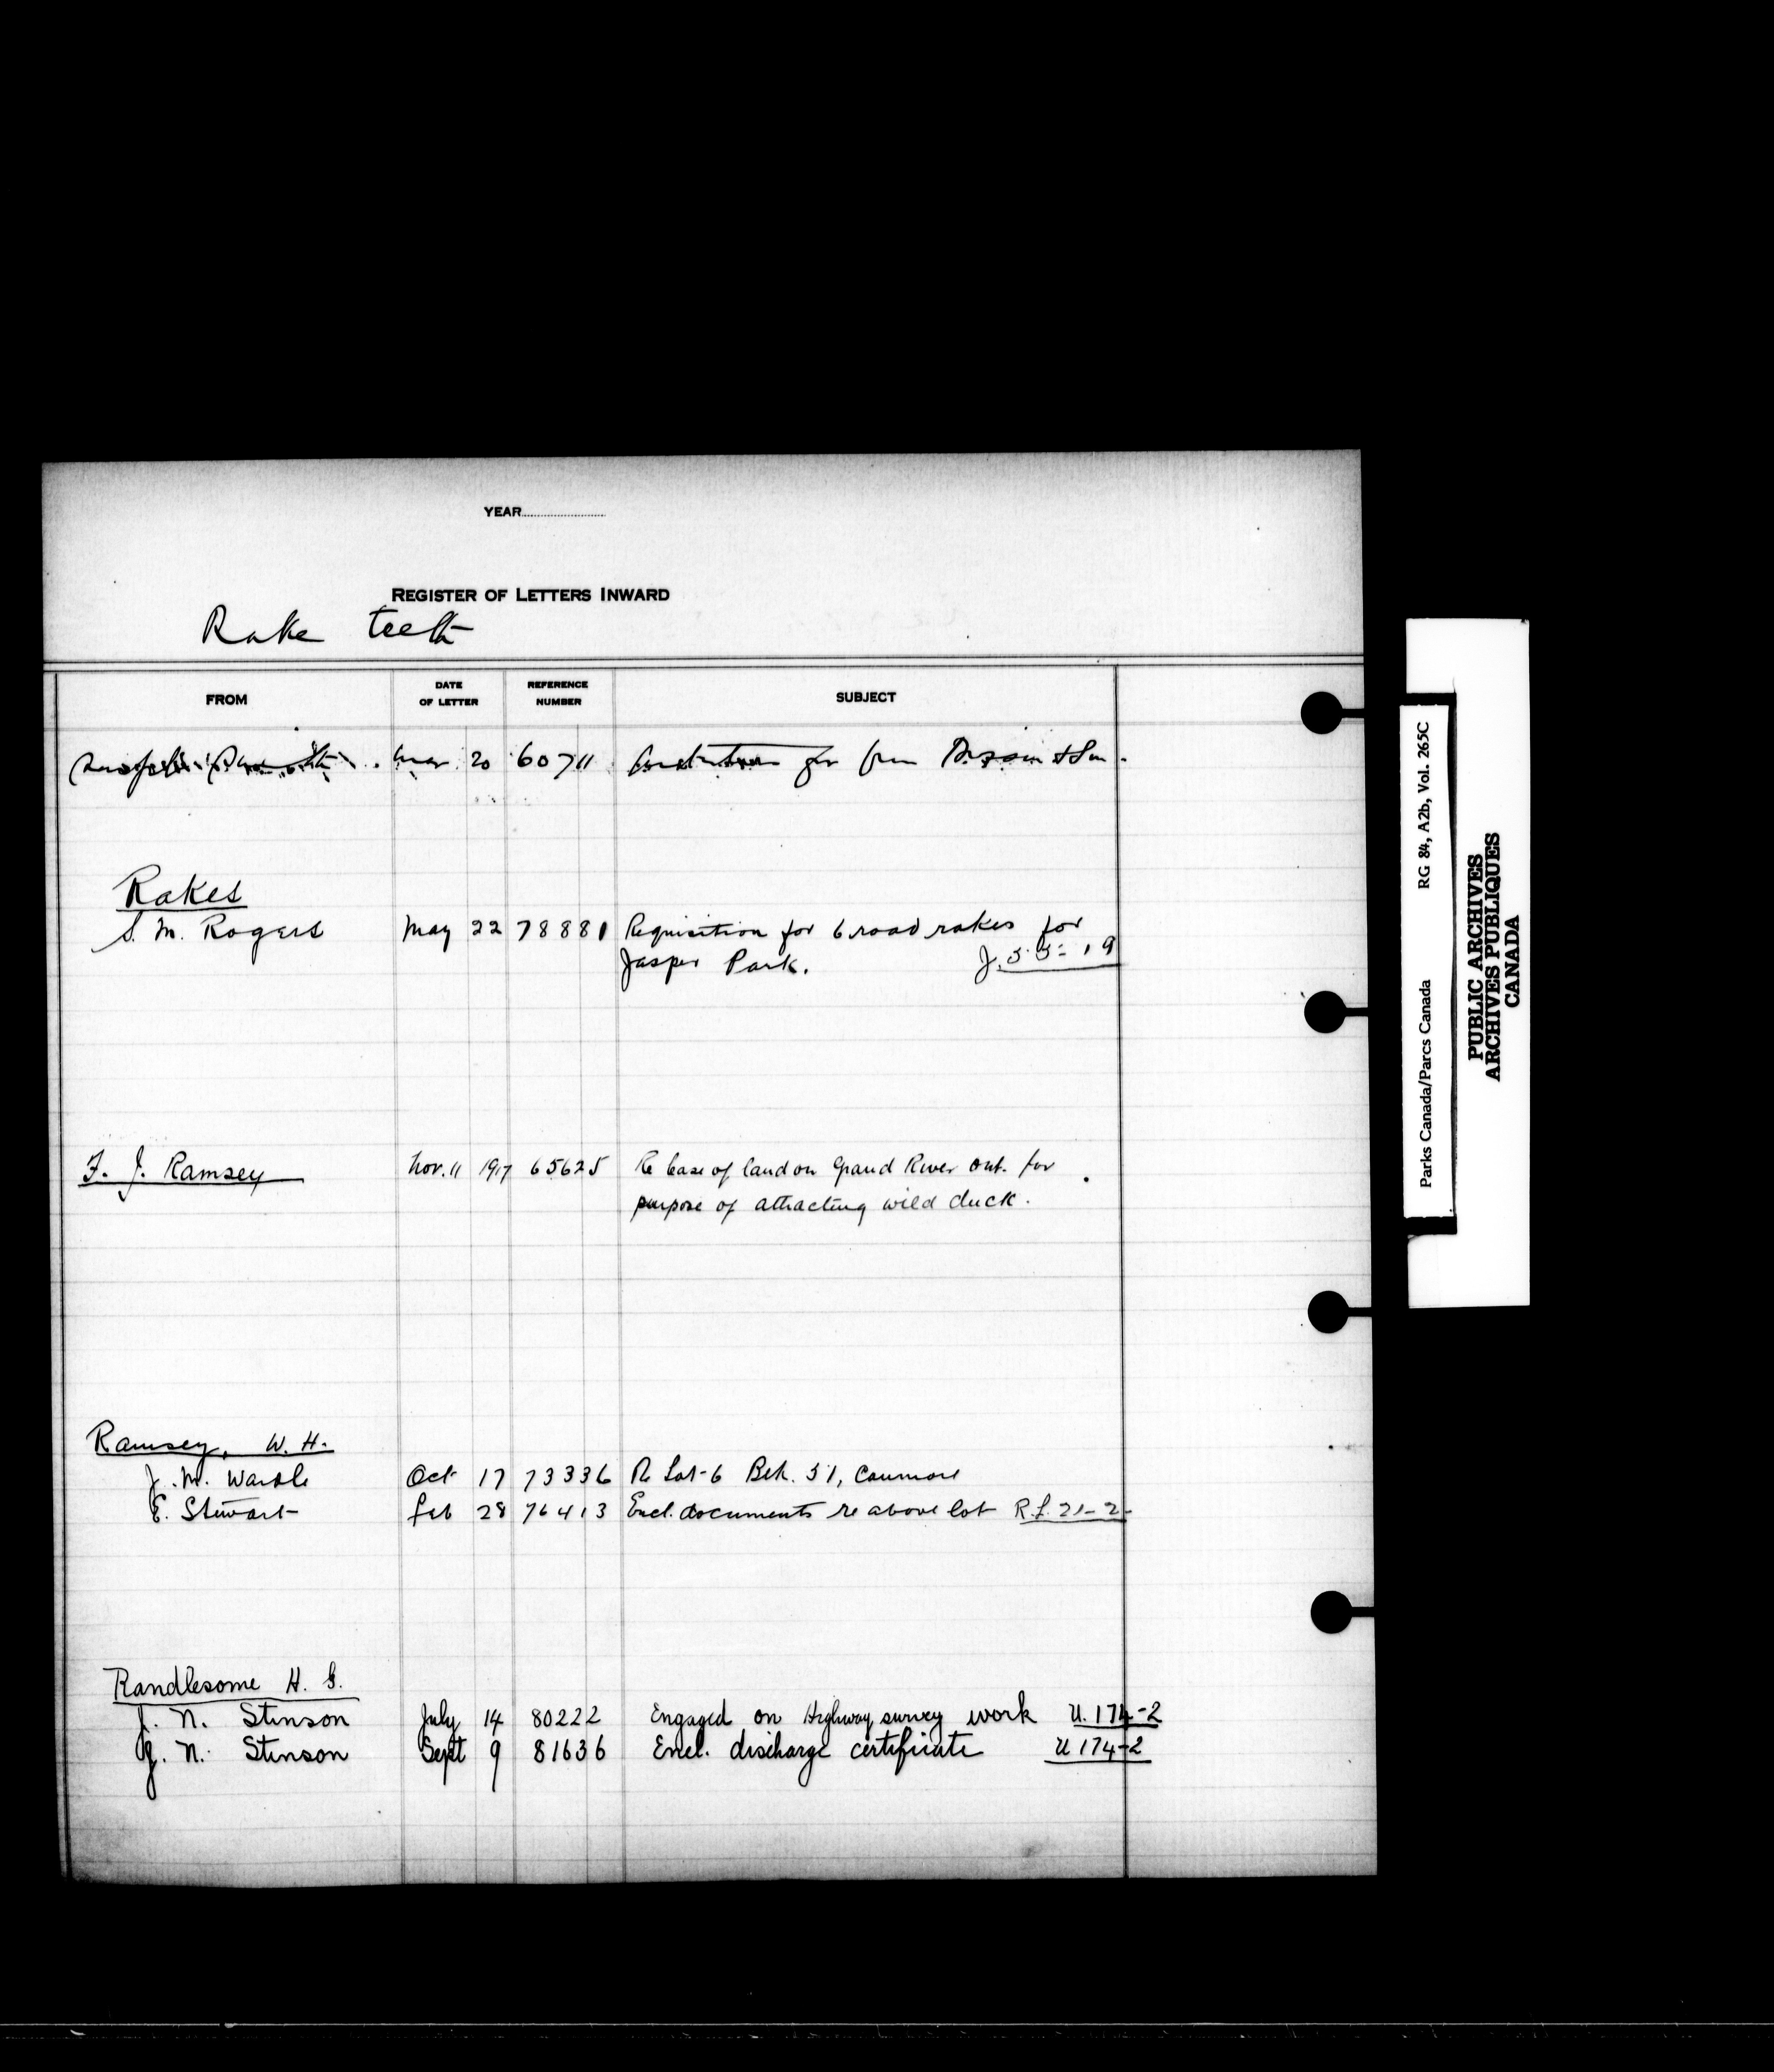 YEAR
REGISTER OF LETTERS INWARD
Rake teeth
FROM DATE OF LETTER REFERENCE NUMBER SUBJECT
Mar 20 60711 for from
Rakes
S. M. Rogers May 22 78881 Requisition for 6 road rakes for
Jasper Park. J. 55-19
F. J. Ramsey Nov. 11 1917 65625 Re lease of land on Grand River Ont. for
purpose of attracting wild duck.
Ramsey, W. H.
J. M. Wardle Oct 17 73336 Re Lot-6 Blk. 51, Canmore
E. Stewart Feb 28 76413 Encl. documents re above lot R.L. 21-2
Randlesome H. G.
J. N. Stinson July 14 80222 Engaged on Highway survey work U. 174-2
J. N. Stinson Sept 9 81636 Encl. discharge certificate U 174-2
Parks Canada/Parcs Canada RG 84, A2b, Vol. 265C
PUBLIC ARCHIVES
ARCHIVES PUBLIQUES
CANADA